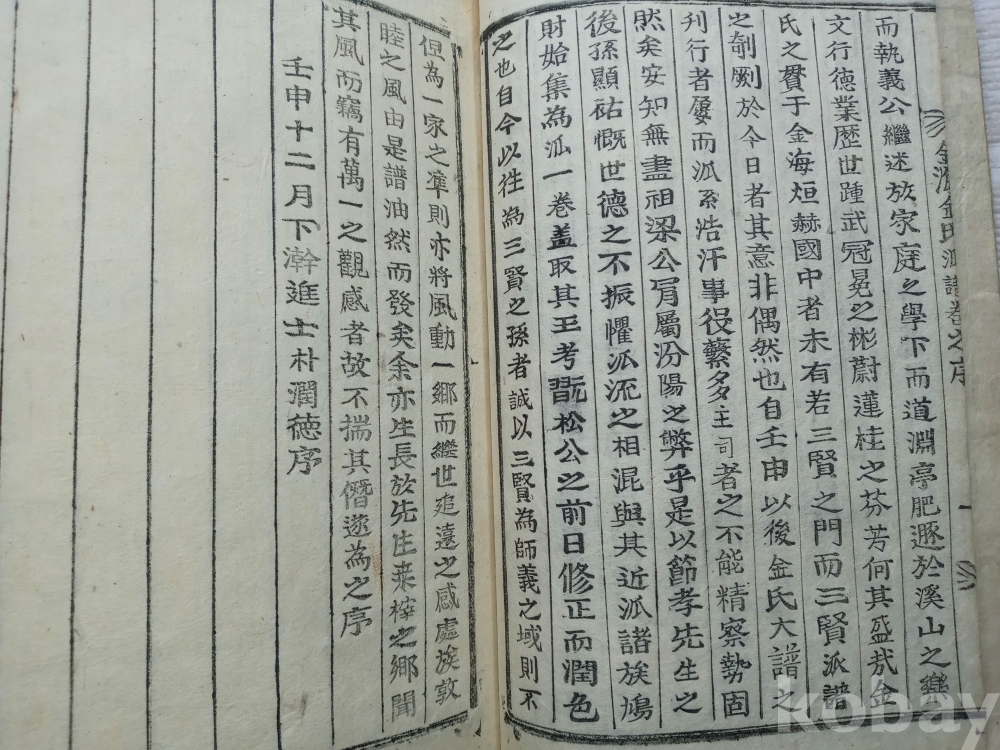 金海金氏派譜卷之序
一
而執義公繼述放家庭之學下而道淵亭肥遯於溪山之樂
文行德業歷世踵武冠冕之彬蔚蓮桂之芬芳何其盛哉金
氏之貫于金海烜赫國中者未有若三賢之門而三賢派譜
之剞劂於今日者其意非偶然也自壬申以後金氏大譜之
刊行者屢而派系浩汗事役蘩多主司者之不能精察勢固
然矣安知無盡祖梁公胃屬汾陽之弊乎是以節孝先生之
後孫顯祐慨世德之不振懼派流之相混與其近派諸族鳩
財始集為派一卷盖取其王考翫松公之前日修正而潤色
之也自今以徃為三賢之孫者誠以三賢為師義之域則不
但為一家之準則亦將風動一鄉而繼世追遠之感處族敦
睦之風由是譜油然而發矣余亦生長於先生桒梓之鄉聞
其風而竊有萬一之觀感者故不揣其僭遂為之序
壬申十二月下澣進士朴潤德序
kobay